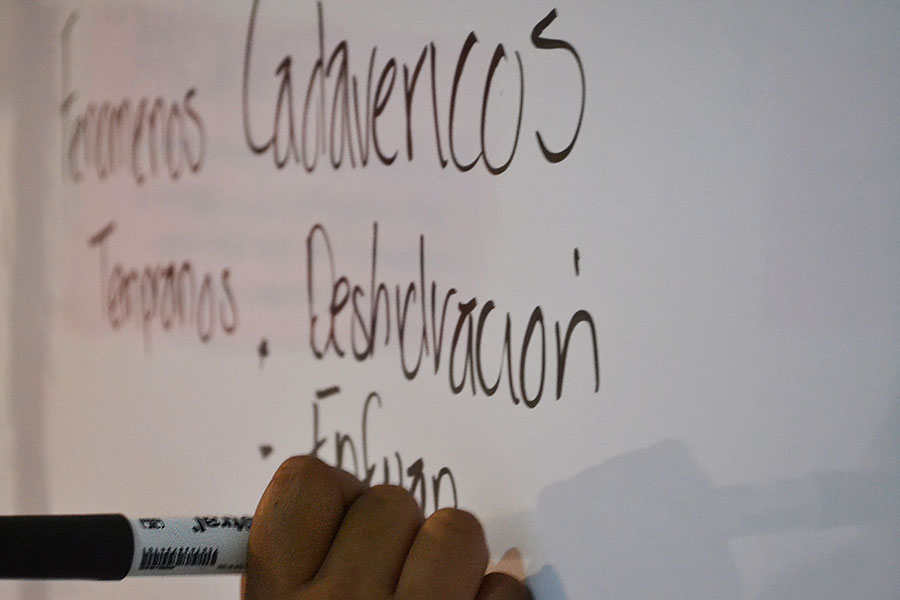 Fenomenos Cadavericos
Tempranos . Deshidración
. Enfrian